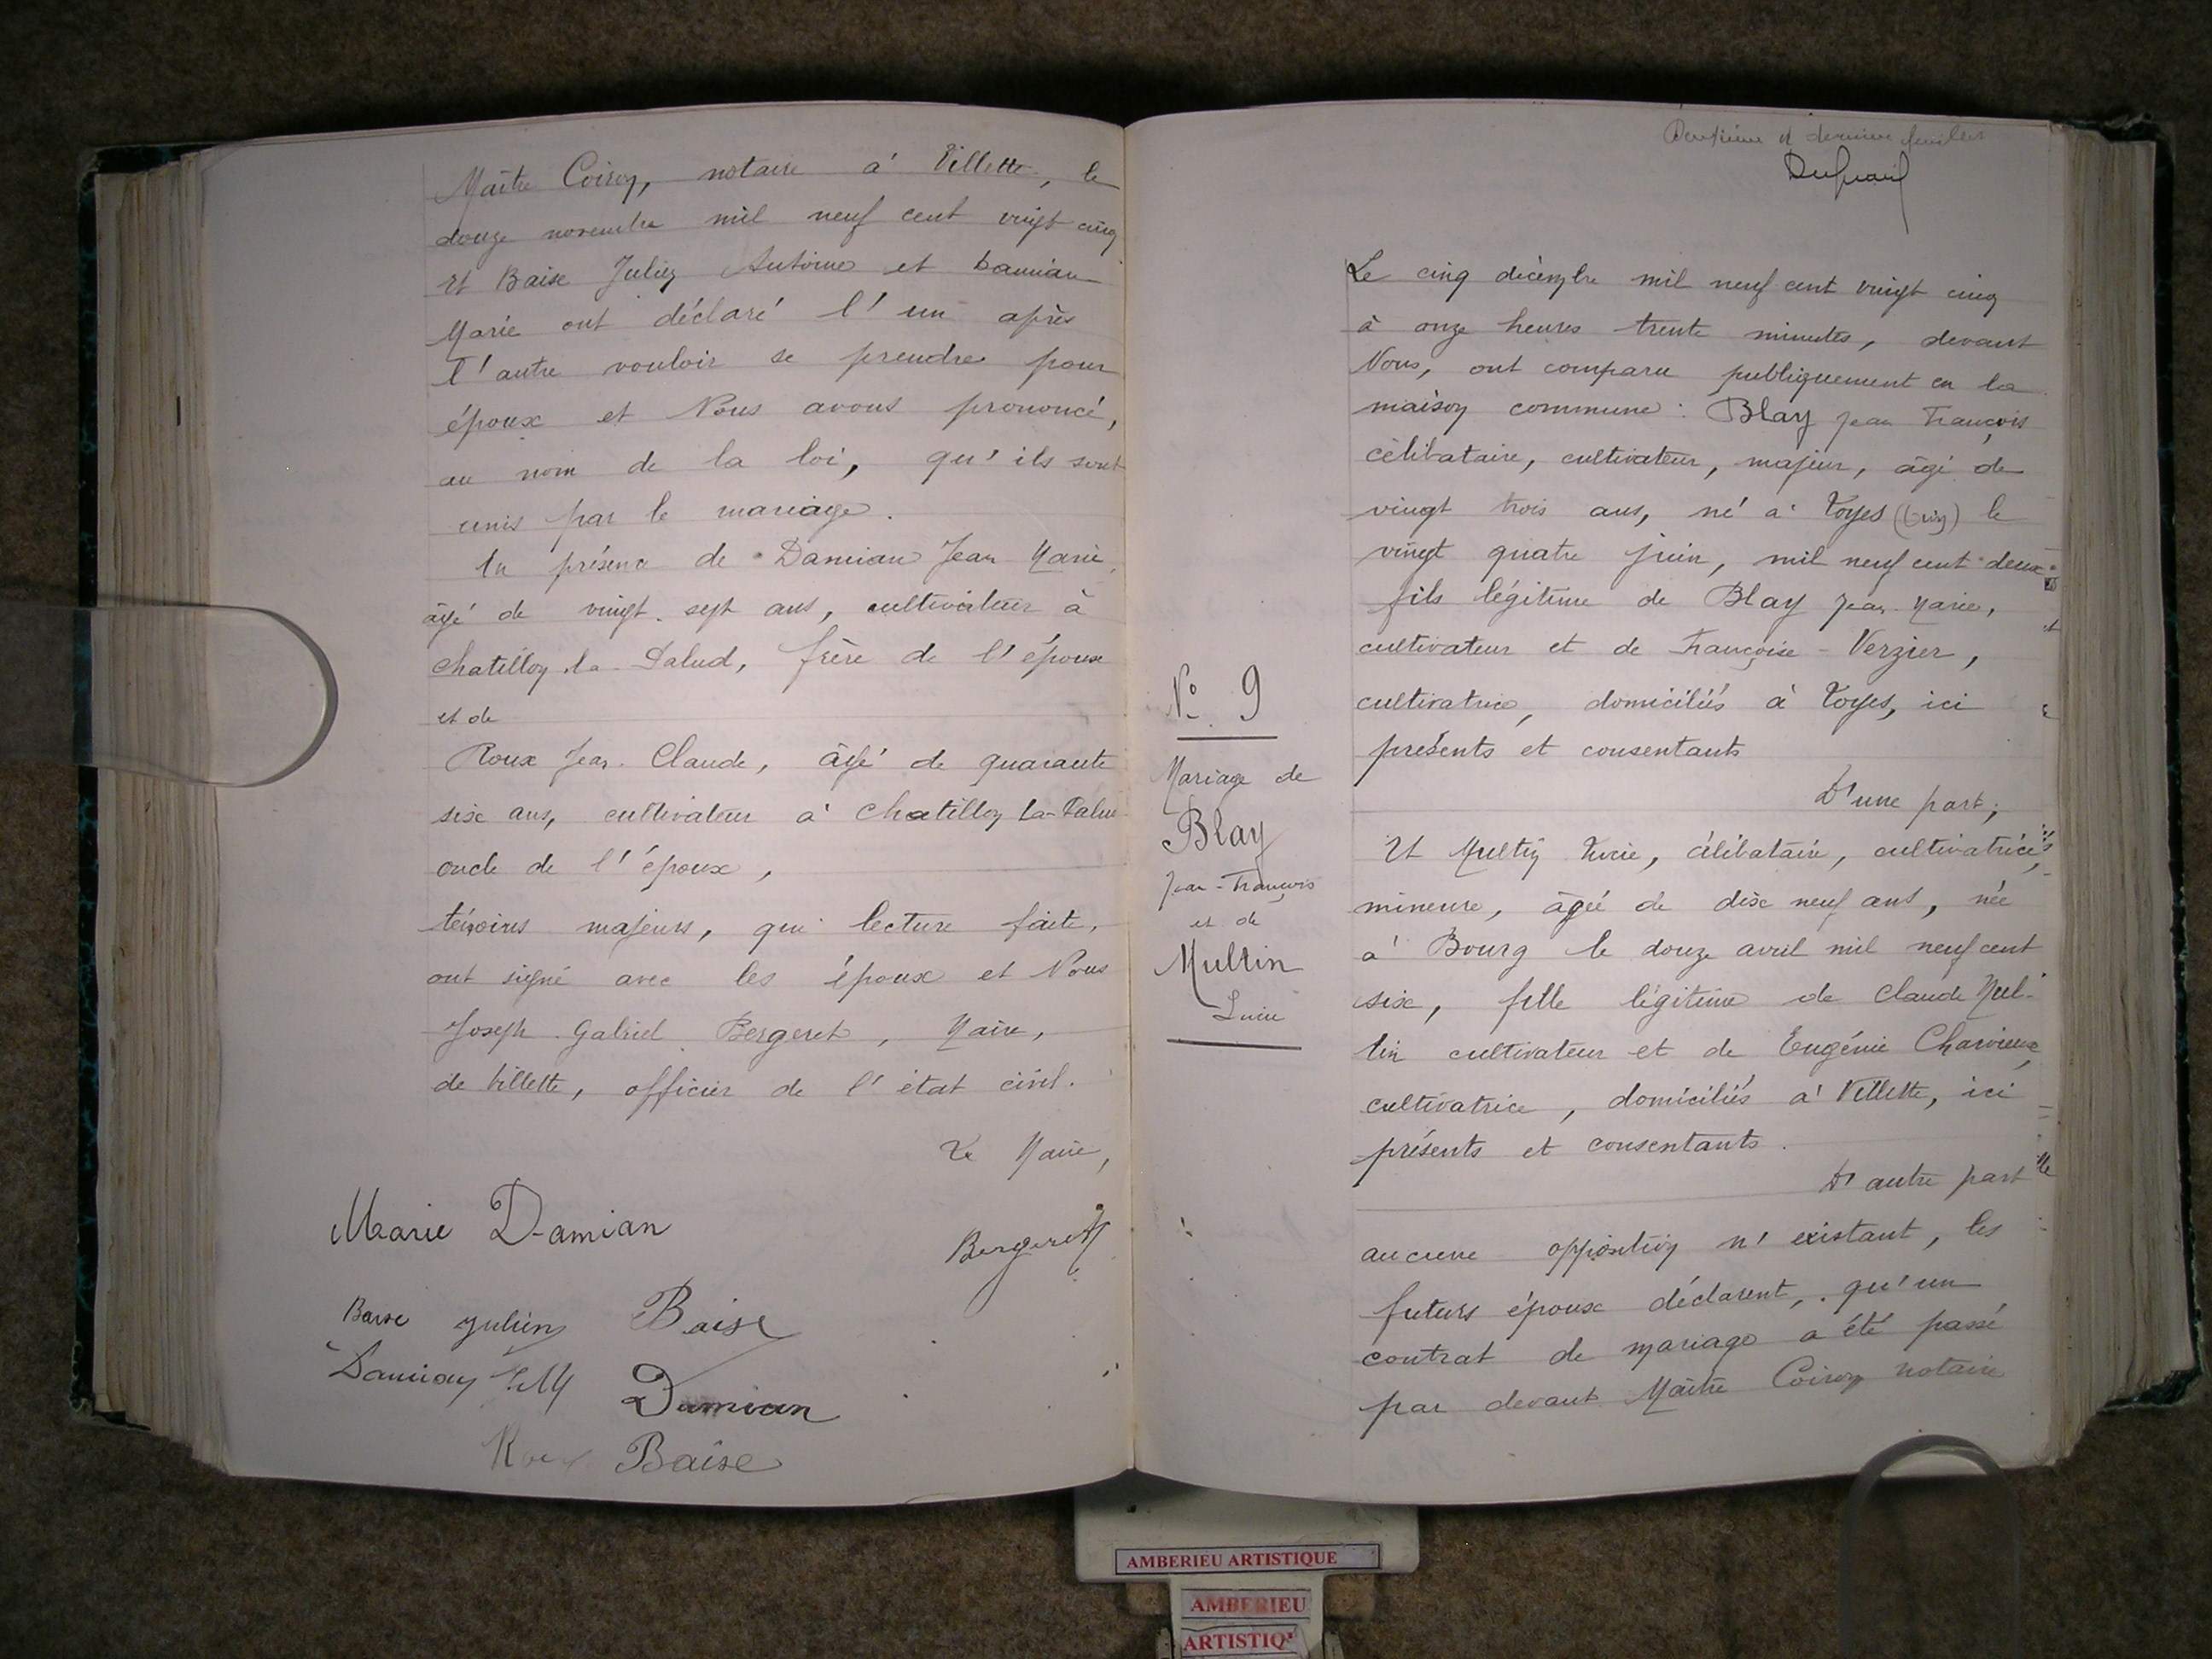 Maître Coiron, notaire à Villette, le
douze novembre mil neuf cent vingt cinq
Et Baise Julien Antoine et Damian
Marie ont déclaré l'un après
l'autre vouloir se prendre pour
époux et Nous avons prononcé,
au nom de la loi, qu'ils sont
unis par le mariage.
En présence de Damian Jean Marie,
âgé de vingt-sept ans, cultivateur à
Chatillon la Palud, frère de l'épouse
et de
Roux Jean-Claude, âgé de quarante
six ans, cultivateur à Chatillon la-Palud
oncle de l'époux,
témoins majeurs, qui lecture faite,
ont signé avec les époux et Nous
Joseph Gabriel Bergeret, Maire,
de Villette, officier de l'état civil.
Le Maire,
Marie Damian
Bergeret
Baise Julien Baise
Damian J M Damian
Roux Baise
Deuxième et dernier feuillet
Le cinq décembre mil neuf cent vingt cinq
à onze heures trente minutes, devant
Nous, ont comparu publiquement en la
maison commune : Blay Jean François
célibataire, cultivateur, majeur, âgé de
vingt trois ans, né à Loyes (Ain) le
vingt quatre juin, mil neuf cent deux
fils légitime de Blay Jean-Marie,
cultivateur et de Françoise Verzier,
cultivatrice, domiciliés à Loyes, ici
présents et consentants
D'une part;
Et Multin Lucie, célibataire, cultivatrice,
mineure, âgée de dix neuf ans, née
à Bourg le douze avril mil neuf cent
six, fille légitime de Claude Mul-
tin cultivateur et de Eugénie Charvieux,
cultivatrice, domiciliés à Villette, ici
présents et consentants.
D'autre part
aucune opposition n'existant, les
futurs époux déclarent, qu'un
contrat de mariage a été passé
par devant Maître Coiron notaire
N° 9
Mariage de
Blay
Jean-François
et de
Multin
Lucie
AMBERIEU ARTISTIQUE
AMBERIEU
ARTISTIQ